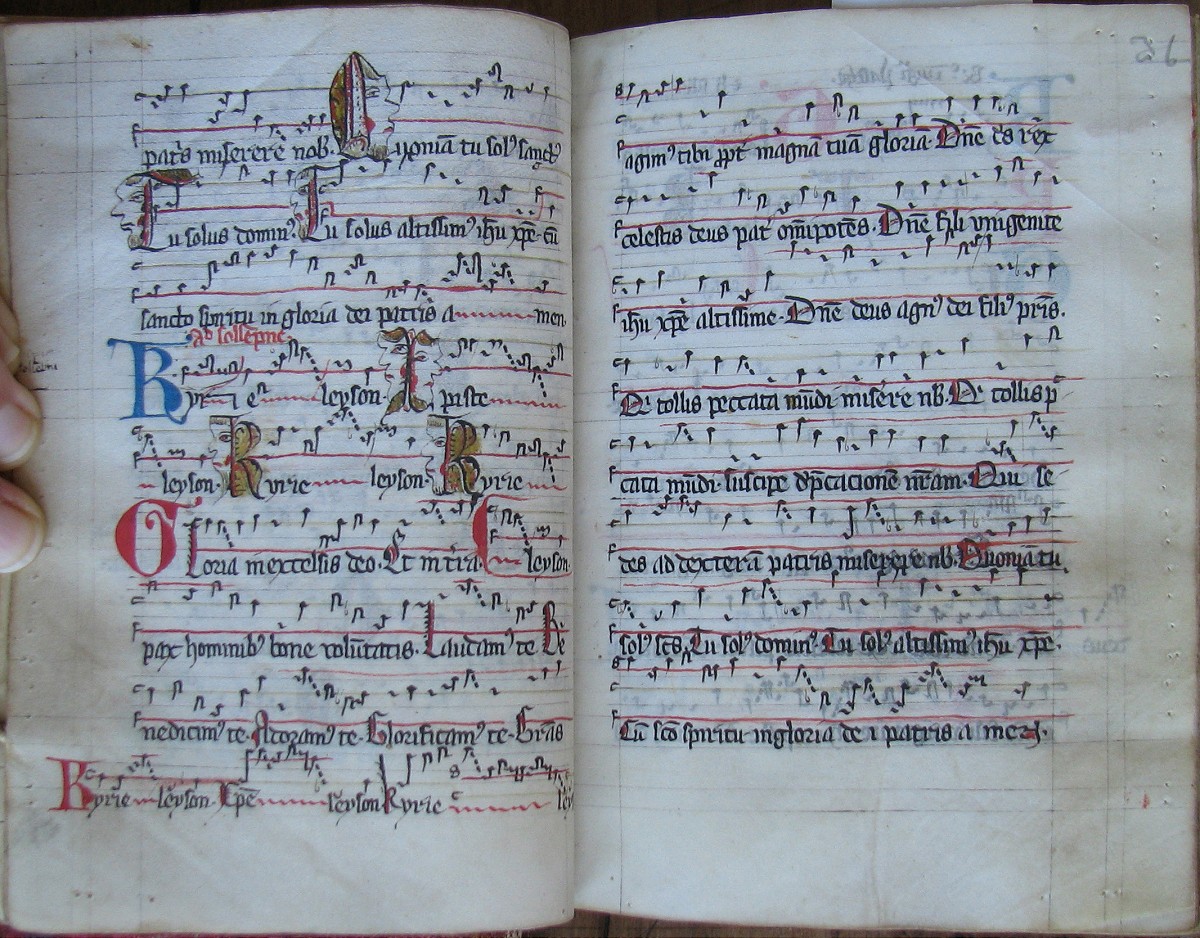 patˢ miserere nob. Quoniā tu solꝰ sanctꝰ
Tu solus dominꝰ. Tu solus altissimꝰ ihu xpe. cū
sancto spiritu in gloria dei patris a men
Kyrie e leyson. xpiste
leyson. Kyrie leyson. Kyrie
Gloria in excelsis deo. Et in tra. leyson.
pax hominibꝰ bone voluntatis. Laudamꝰ te. Be
nedicimꝰ te. Adoramꝰ te. Glorificamꝰ te. Gras
Kyrie leyson. Xpe leyson Kyrie ley
agimꝰ tibi ppt magnā tuā gloriā. Dne ds rex
celestis deus pat omipotēs. Dne fili vnigenite
ihu xpe altissime. Dne deus agnꝰ dei filiꝰ pris.
Qi tollis peccata mūdi misere nb. Qi tollis p
cata mūdi. suscipe dpcacionē nram. Qui se
des ad dexterā patris miserere nb. Quoniā tu
solꝰ scs. Tu solꝰ dominꝰ. Tu solꝰ altissimꝰ ihu xpe.
Cū sco spiritu in gloria de i patris a men.